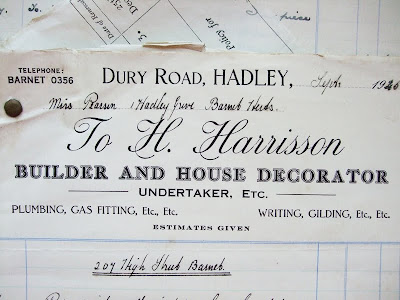 piece
Date of Renewal
Policy for
TELEPHONE:
BARNET 0356
DURY ROAD, HADLEY, Sept. 1926
Miss 1 Hadley Grove Barnet Herts.
To H. Harrisson
BUILDER AND HOUSE DECORATOR
UNDERTAKER, ETC.
PLUMBING, GAS FITTING, Etc., Etc. WRITING, GILDING, Etc., Etc.
ESTIMATES GIVEN
207 High Street Barnet.